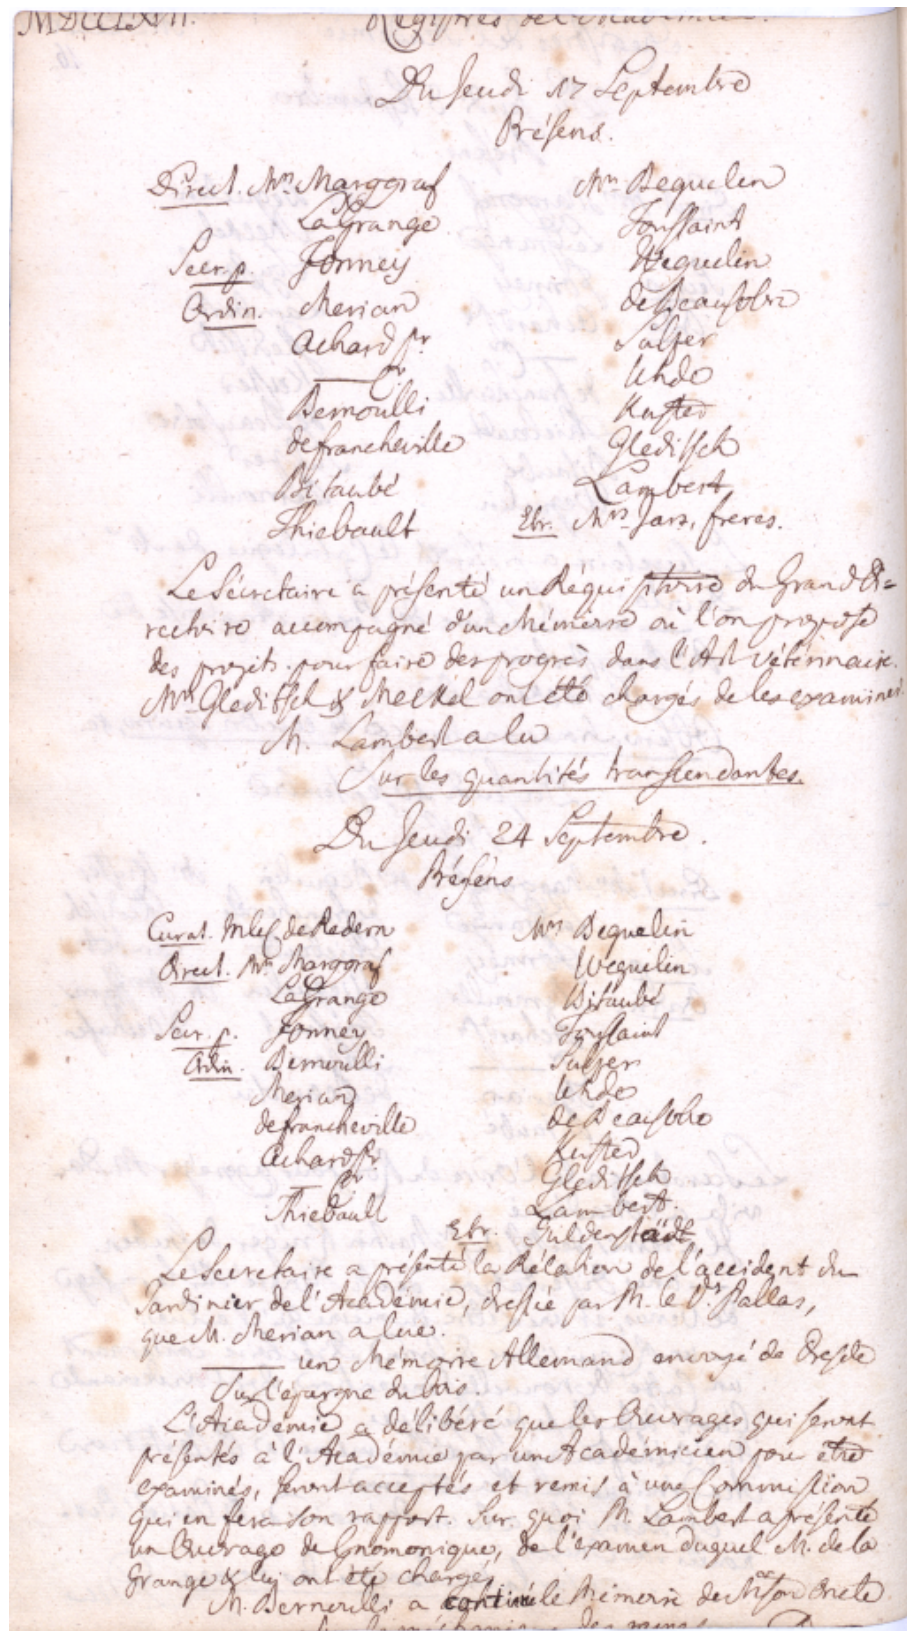 MDCCLXVII.
Registres de l'Académie.
Du Jeudi 17 Septembre
Présens.
Direct. Mrs Marggraf
LaGrange
Secr. p. Formey
Ordin. Merian
Achard Pr.
Bernoulli
de francheville
Bitaubé
Thiebault
Mrs Beguelin
Toussaint
Weguelin
de Beausobre
Sulzer
Uhdo
Kuster
Gleditsch
Lambert
Etr. Mrs Jars, freres.
Le Sécretaire a présenté un Réquisitoire du Grand Di=
rectoire accompagné d'un Mémoire où l'on propose
des projets pour faire des progrès dans l'Art vétérinaire.
Mrs Gleditsch & Meckel ont été chargés de les examiner.
M. Lambert a lu
Sur les quantités transcendantes.
Du Jeudi 24 Septembre.
Présens
Curat. Mlec de Redern
Direct. Mrs Marggraf
LaGrange
Secr. p. Formey
Ordin. Bernoulli
Merian
de francheville
Achard Pr.
Thiebault
Mrs Beguelin
Weguelin
Bitaubé
Toussaint
Sulzer
Uhdo
de Beausobre
Kuster
Gleditsch
Lambert.
Etr. Güldenstädt
Le Secretaire a présenté la Rélation de l'accident du
Jardinier de l'Académie, dressée par M. le Dr. Pallas,
que M. Merian a lue.
un Mémoire Allemand envoyé de Dresde
Sur l'épargne du bois.
L'Académie a délibéré que les Ouvrages qui seront
présentés à l'Académie par un Académicien pour être
examinés, seront acceptés et remis à une Commission
qui en fera son rapport. Sur quoi M. Lambert a présenté
un Ouvrage de Gnomonique, de l'éxamen duquel M. de la
Grange & lui ont été chargés.
M. Bernoulli a continué le Mémoire de Mr son Oncle